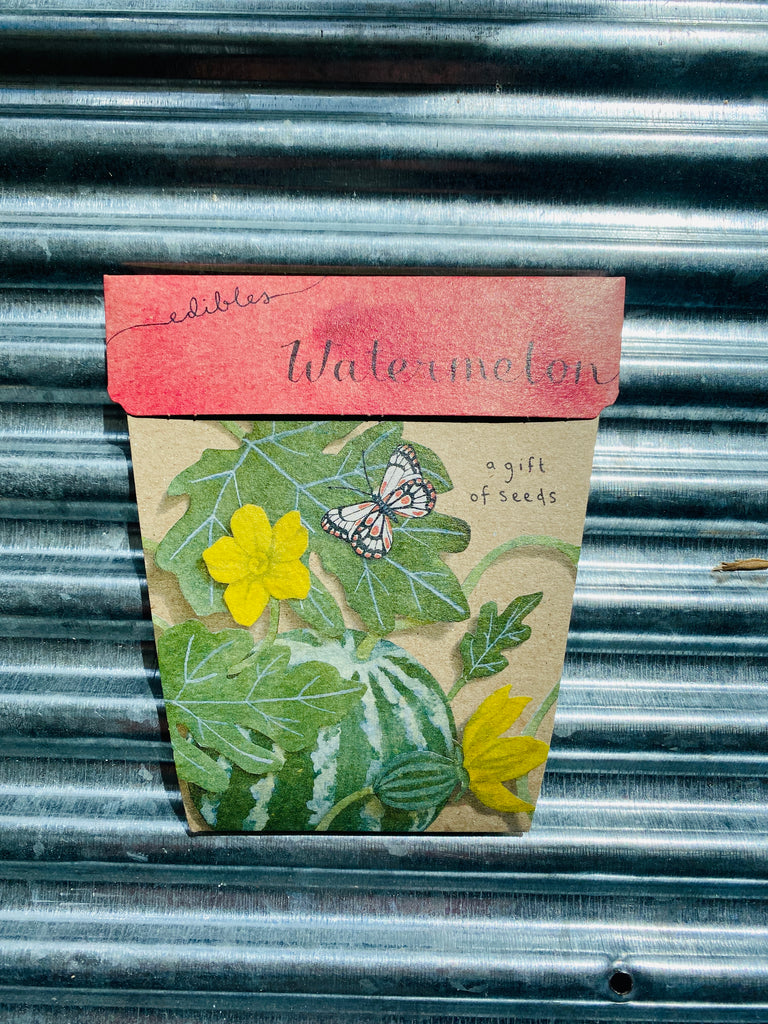 edibles
Watermelon
a gift
of seeds